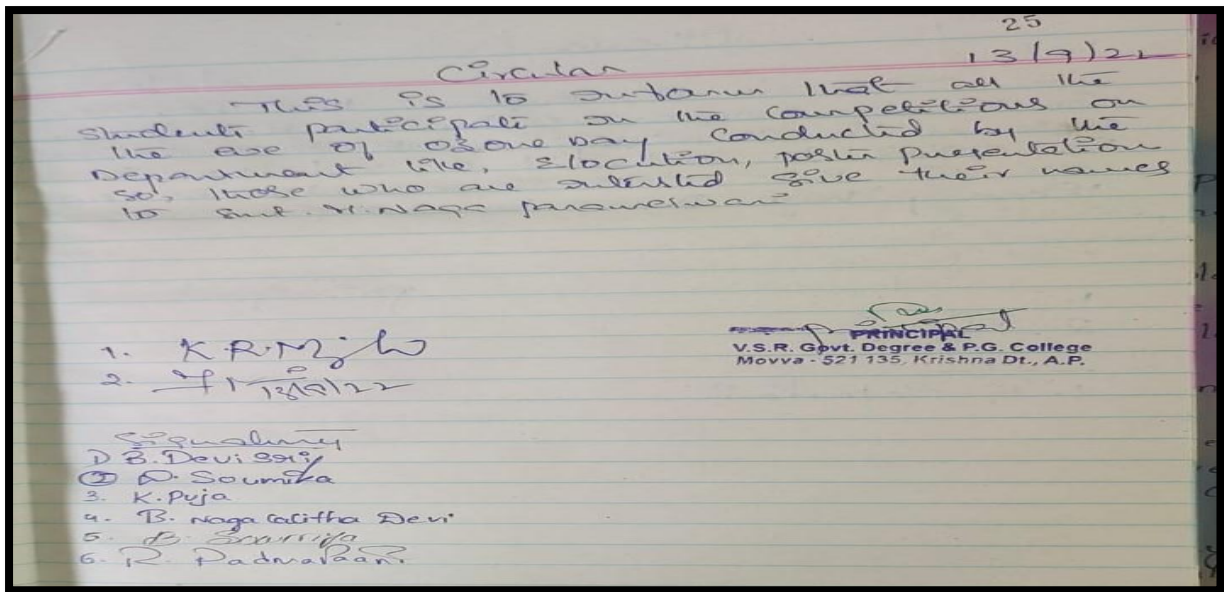 25
13/9/22
Circular
This is to inform that all the
students participate in the competitions on
the eve of ozone Day conducted by the
Department like, Elocution, poster Presentation
So, those who are interested give their names
to Smt. Naga parameswari
PRINCIPAL
V.S.R. Govt. Degree & P.G. College
Movva - 521 135, Krishna Dt., A.P.
1. K.R.
2. 13/9/22
Signatures
1) B. Devi Sri
2 D. Soumika
3. K. Puja
4. B. Naga Lalitha Devi
5. B.
6. R. Padma